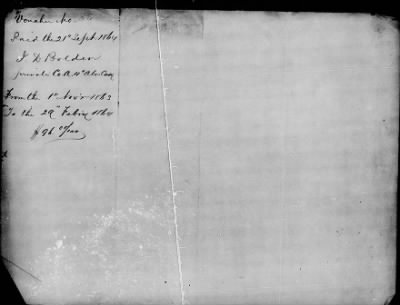 Voucher No
Paid the 21st Sept. 1864
J D Bolden
private Co A
From the 1st Nov'r 1863
To the 29th Feb'ry 1864